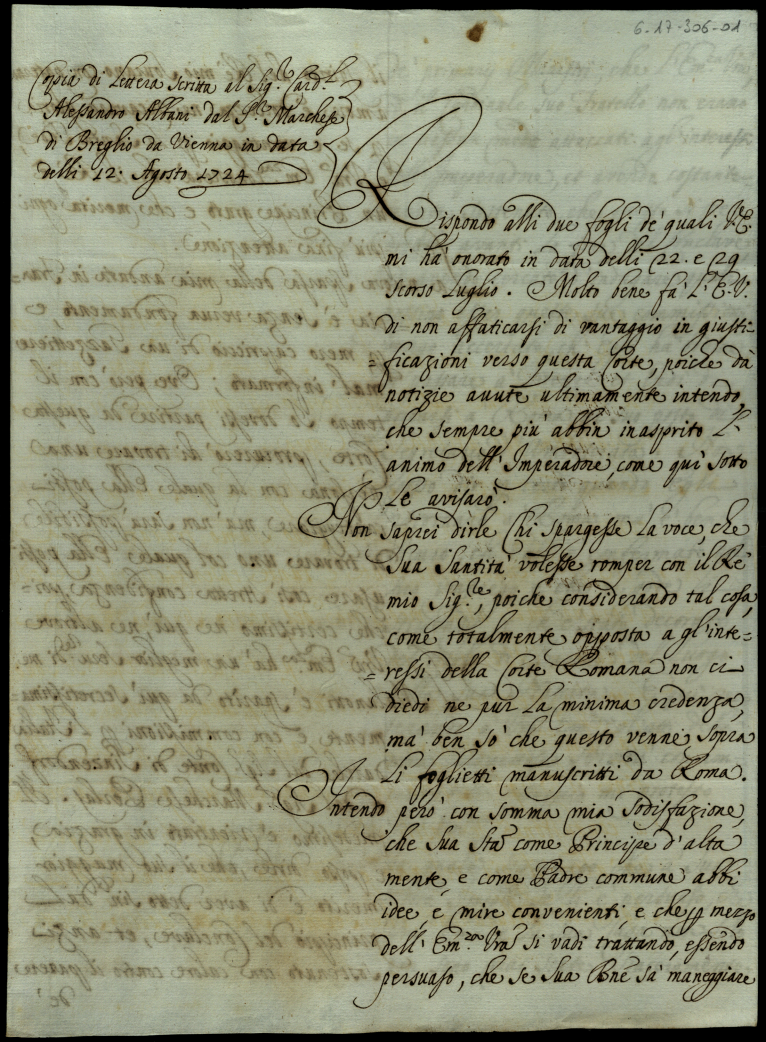 6-17-306-01
Copia di Lettera scritta al Sig.re Card.l
Alessandro Albani dal S.r Marchese
di Breglio da Vienna in data
delli 12. Agosto 1724
Rispondo alli due fogli de' quali V.E.
mi hà onorato in data delli 22. e 29
scorso Luglio. Molto bene fà L'E.V.
di non affaticarsi di vantaggio in giusti-
=ficazioni verso questa Corte, poiche dà
notizie avute ultimamente intendo,
che sempre più abbin inasprito L'
animo dell'Imperadore, come quì sotto
Le avisarò.
Non saprei dirle Chi spargesse La voce, che
Sua Santità volesse romper con il Rè
mio Sig.re, poiche considerando tal cosa,
come totalmente opposta a gl'inte=
=ressi della Corte Romana non ci
diedi ne pur La minima credenza,
mà ben sò che questo venne sopra
Li foglietti manuscritti da Roma.
Intendo però con somma mia sodisfazione,
che Sua Stà come Principe d'alta
mente, e come Padre commune abbi
idee, e mire convenienti, e che p mezzo
dell'Em.za Vrã si vadi trattando, essendo
persuaso, che se Sua Bne sà maneggiare